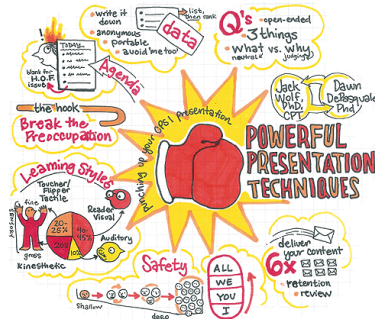 TODAY...
blank for
H.O.F.
issue
Agenda
• write it
down
• anonymous
portable
• avoid 'me too'
data
• list,
then rank
Q's
• open-ended
• 3 things
• what vs. why
neutral
judging
Jack
Wolf,
PhD,
CPT
Dawn
PhD
the hook
Break the
Preoccupation
Punching up your OPSI presentation
POWERFUL
PRESENTATION
TECHNIQUES
Learning Styles
Toucher/
Flipper
Tactile
Reader
Visual
Auditory
fine
gross
Kinesthetic
20-
25%
40-
45%
10%
Safety
shallow
deep
ALL
WE
YOU
I
deliver
your content
6x
• retention
• review